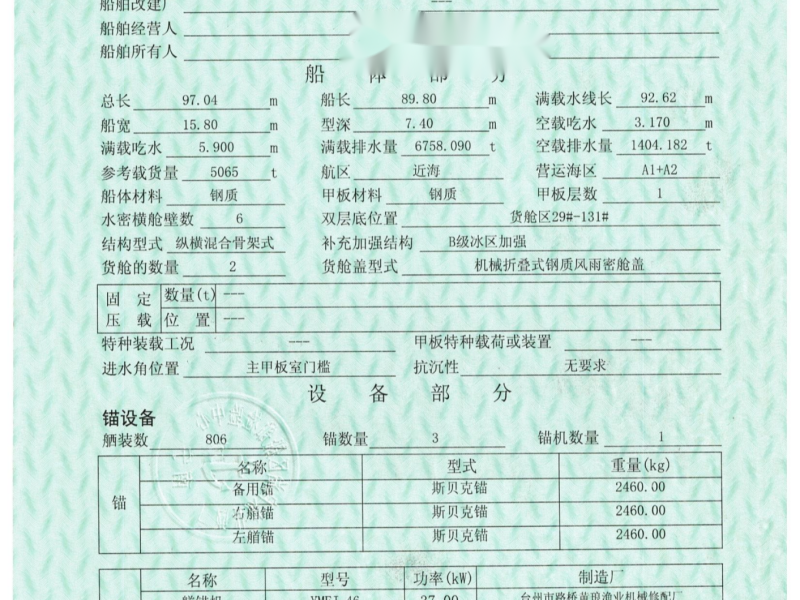 船舶改建厂 ---
船舶经营人
船舶所有人
船 体 部 分
总长 97.04 m 船长 89.80 m 满载水线长 92.62 m
船宽 15.80 m 型深 7.40 m 空载吃水 3.170 m
满载吃水 5.900 m 满载排水量 6758.090 t 空载排水量 1404.182 t
参考载货量 5065 t 航区 近海 营运海区 A1+A2
船体材料 钢质 甲板材料 钢质 甲板层数 1
水密横舱壁数 6 双层底位置 货舱区29#-131#
结构型式 纵横混合骨架式 补充加强结构 B级冰区加强
货舱的数量 2 货舱盖型式 机械折叠式钢质风雨密舱盖
固 定 数量(t) ---
压 载 位 置 ---
特种装载工况 --- 甲板特种载荷或装置 ---
进水角位置 主甲板室门槛 抗沉性 无要求
设 备 部 分
锚设备
舾装数 806 锚数量 3 锚机数量 1
名称 型式 重量(kg)
锚 备用锚 斯贝克锚 2460.00
右艏锚 斯贝克锚 2460.00
左艏锚 斯贝克锚 2460.00
名称 型号 功率(kW) 制造厂
台州市路桥黄琅渔业机械修配厂